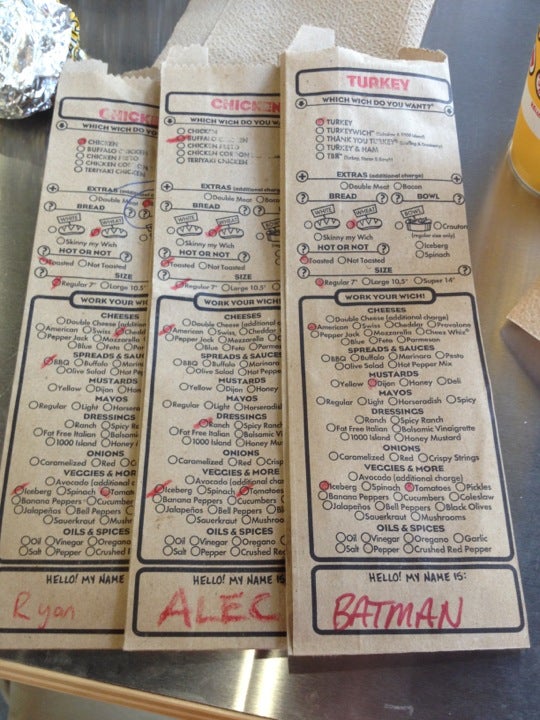 CHICKE
WHICH WICH DO YOU
CHICKEN
BUFFALO CHICKEN
CHICKEN PESTO
CHICKEN CORDON
TERIYAKI CHICKEN
EXTRAS (additional
Double Meat
BREAD
WHITE WHEAT
Skinny my Wich
HOT OR NOT
Toasted Not Toasted
SIZE
Regular 7" Large 10.5"
WORK YOUR
CHEESES
Double Cheese (addition
American Swiss Chedda
Pepper Jack Mozzarella
Blue Feta Par
SPREADS & SAUCE
BBQ Buffalo Marinara
Olive Salad Hot Pe
MUSTARDS
Yellow Dijon Honey
MAYOS
Regular Light Horserad
DRESSINGS
Ranch Spicy R
Fat Free Italian Balsami
1000 Island Honey
ONIONS
Caramelized Red C
VEGGIES & MORE
Avocado (additional c
Iceberg Spinach Tomato
Banana Peppers Cucumber
Jalapeños Bell Peppers
Sauerkraut Mushr
OILS & SPICES
Oil Vinegar Oregano
Salt Pepper Crushed R
HELLO! MY NAME
Ryan
CHICKEN
WHICH WICH DO YOU WA
CHICKEN
BUFFALO CHICKEN
CHICKEN PESTO
CHICKEN CORDON
TERIYAKI CHICKEN
EXTRAS (additional cha
Double Meat Baco
BREAD
WHITE WHEAT
Skinny my Wich
HOT OR NOT
Toasted Not Toasted
SIZE
Regular 7" Large 10.5"
WORK YOUR WICH
CHEESES
Double Cheese (additional
American Swiss Cheddar
Pepper Jack Mozzarella
Blue Feta Parmes
SPREADS & SAUCES
BBQ Buffalo Marinara
Olive Salad Hot Peppe
MUSTARDS
Yellow Dijon Honey
MAYOS
Regular Light Horseradis
DRESSINGS
Ranch Spicy Ranc
Fat Free Italian Balsamic Vi
1000 Island Honey Mu
ONIONS
Caramelized Red Crisp
VEGGIES & MORE
Avocado (additional c
Iceberg Spinach Tomatoes
Banana Peppers Cucumbers
Jalapeños Bell Peppers B
Sauerkraut Mushroo
OILS & SPICES
Oil Vinegar Oregano
Salt Pepper Crushed Red
HELLO! MY NAME IS
ALEC
TURKEY
WHICH WICH DO YOU WANT?
TURKEY
TURKEYWICH
THANK YOU TURKEY (Stuffing & Cranberry)
TURKEY & HAM
TBR (Turkey, Bacon & Ranch)
EXTRAS (additional charge)
Double Meat Bacon
BREAD BOWL
WHITE WHEAT BOWL Crouton
(regular size only)
Skinny my Wich Iceberg
HOT OR NOT Spinach
Toasted Not Toasted
SIZE
Regular 7" Large 10.5" Super 14"
WORK YOUR WICH!
CHEESES
Double Cheese (additional charge)
American Swiss Cheddar Provolone
Pepper Jack Mozzarella Cheez Whiz®
Blue Feta Parmesan
SPREADS & SAUCES
BBQ Buffalo Marinara Pesto
Olive Salad Hot Pepper Mix
MUSTARDS
Yellow Dijon Honey Deli
MAYOS
Regular Light Horseradish Spicy
DRESSINGS
Ranch Spicy Ranch
Fat Free Italian Balsamic Vinaigrette
1000 Island Honey Mustard
ONIONS
Caramelized Red Crispy Strings
VEGGIES & MORE
Avocado (additional charge)
Iceberg Spinach Tomatoes Pickles
Banana Peppers Cucumbers Coleslaw
Jalapeños Bell Peppers Black Olives
Sauerkraut Mushrooms
OILS & SPICES
Oil Vinegar Oregano Garlic
Salt Pepper Crushed Red Pepper
HELLO! MY NAME IS:
BATMAN